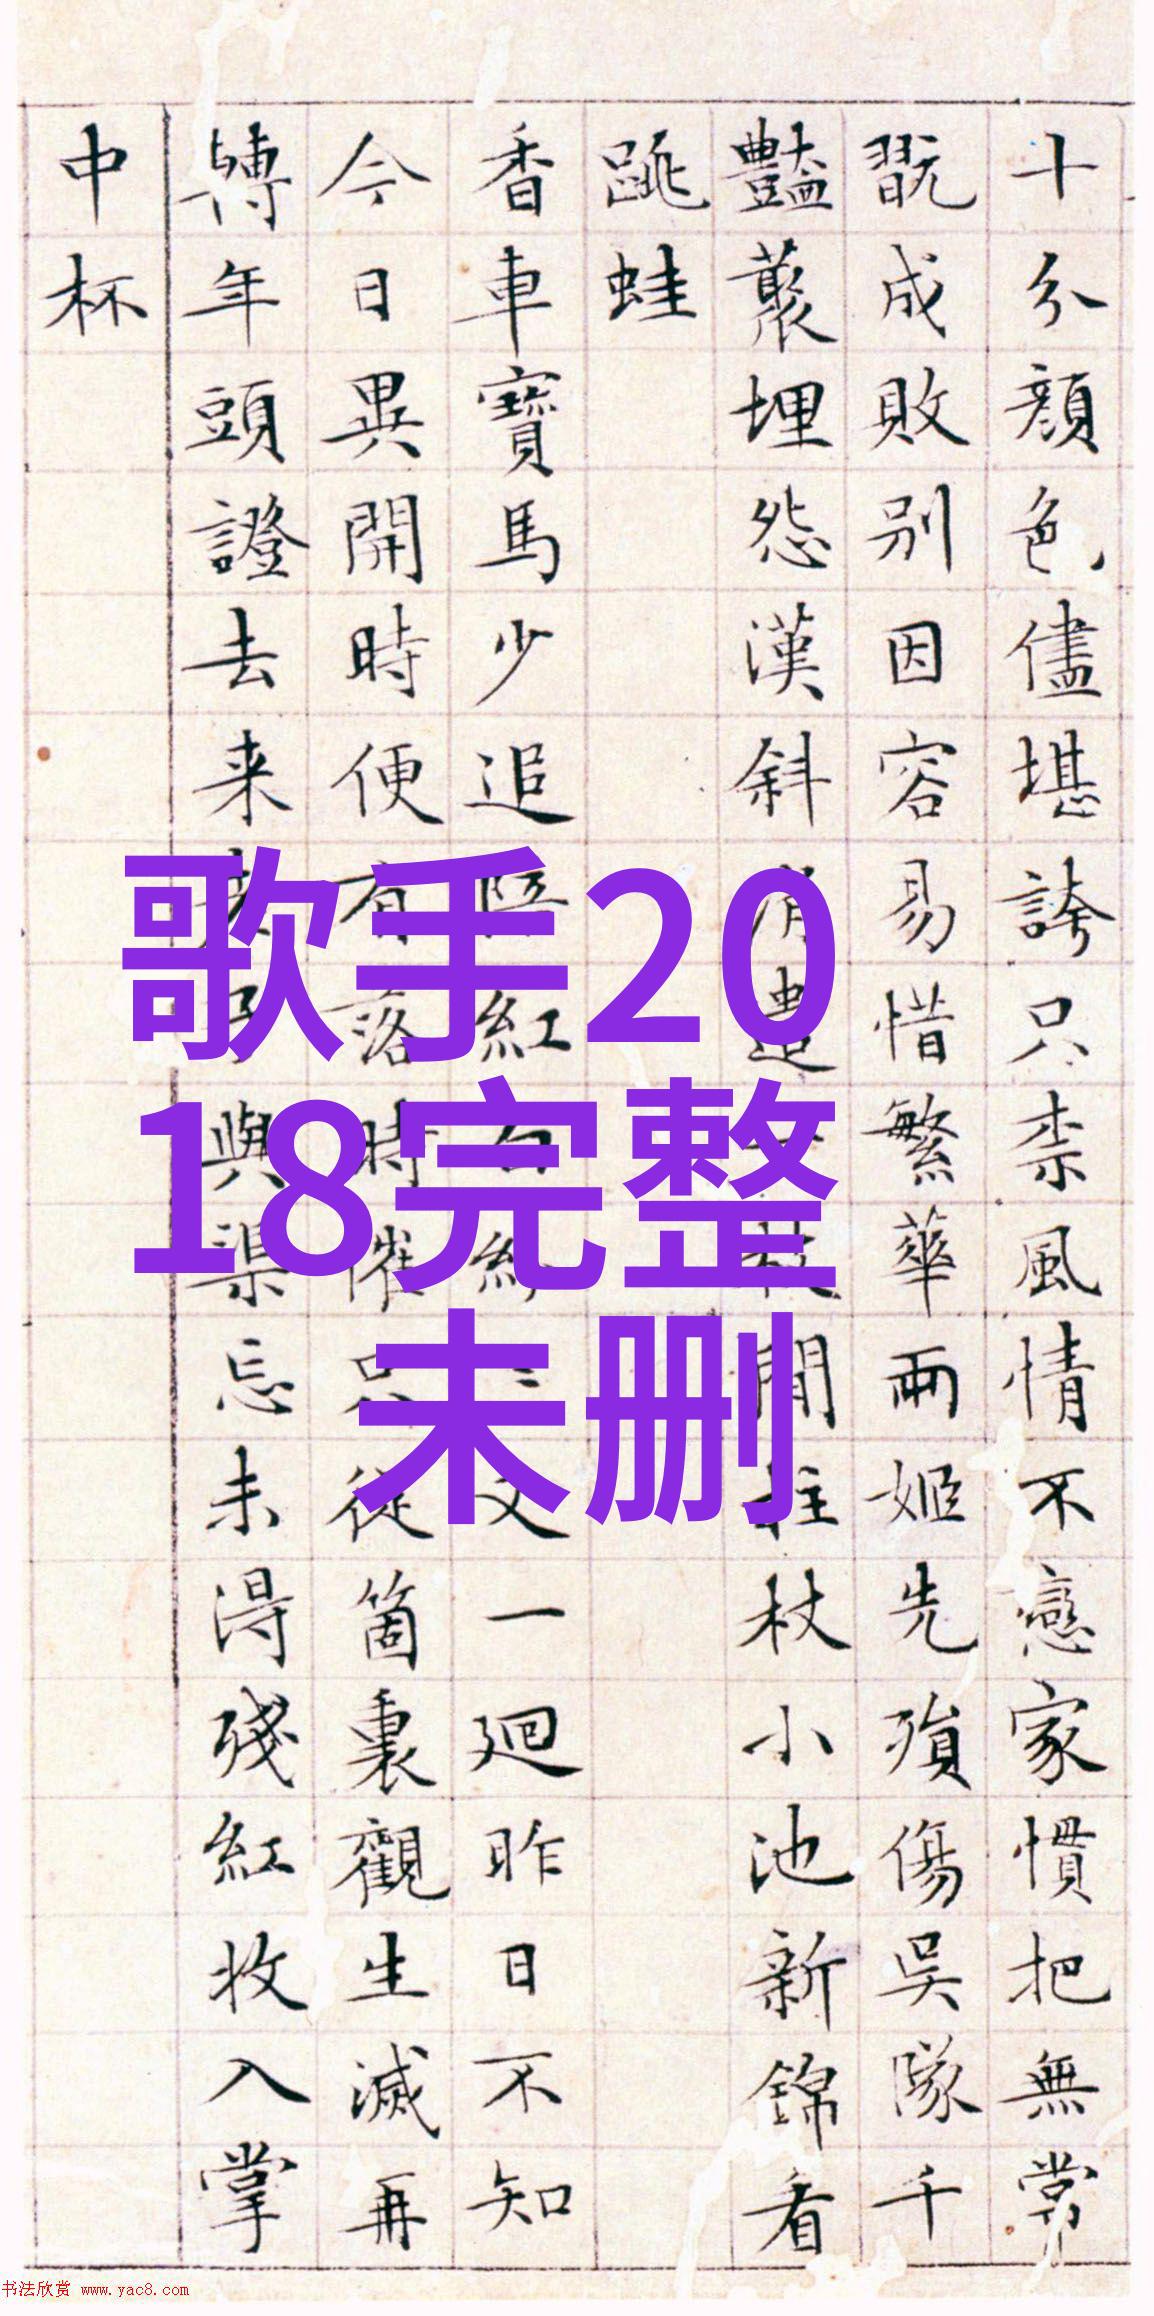 十分顏色儘堪誇只柰風情不戀家慣把無常
翫成敗別因容易惜繁華兩姬先殞傷吳隊千
豔叢埋怨漢斜 遣 閒拄杖小池新錦看
跳蛙
香車寶馬少追陪紅白紛 又一廻昨日不知
今日異開時便有落時催只從箇裏觀生滅再
轉年頭證去来 與渠忘未淂殘紅收入掌
中杯
歌手20
18完整
未删
书法欣赏 www.yac8.com